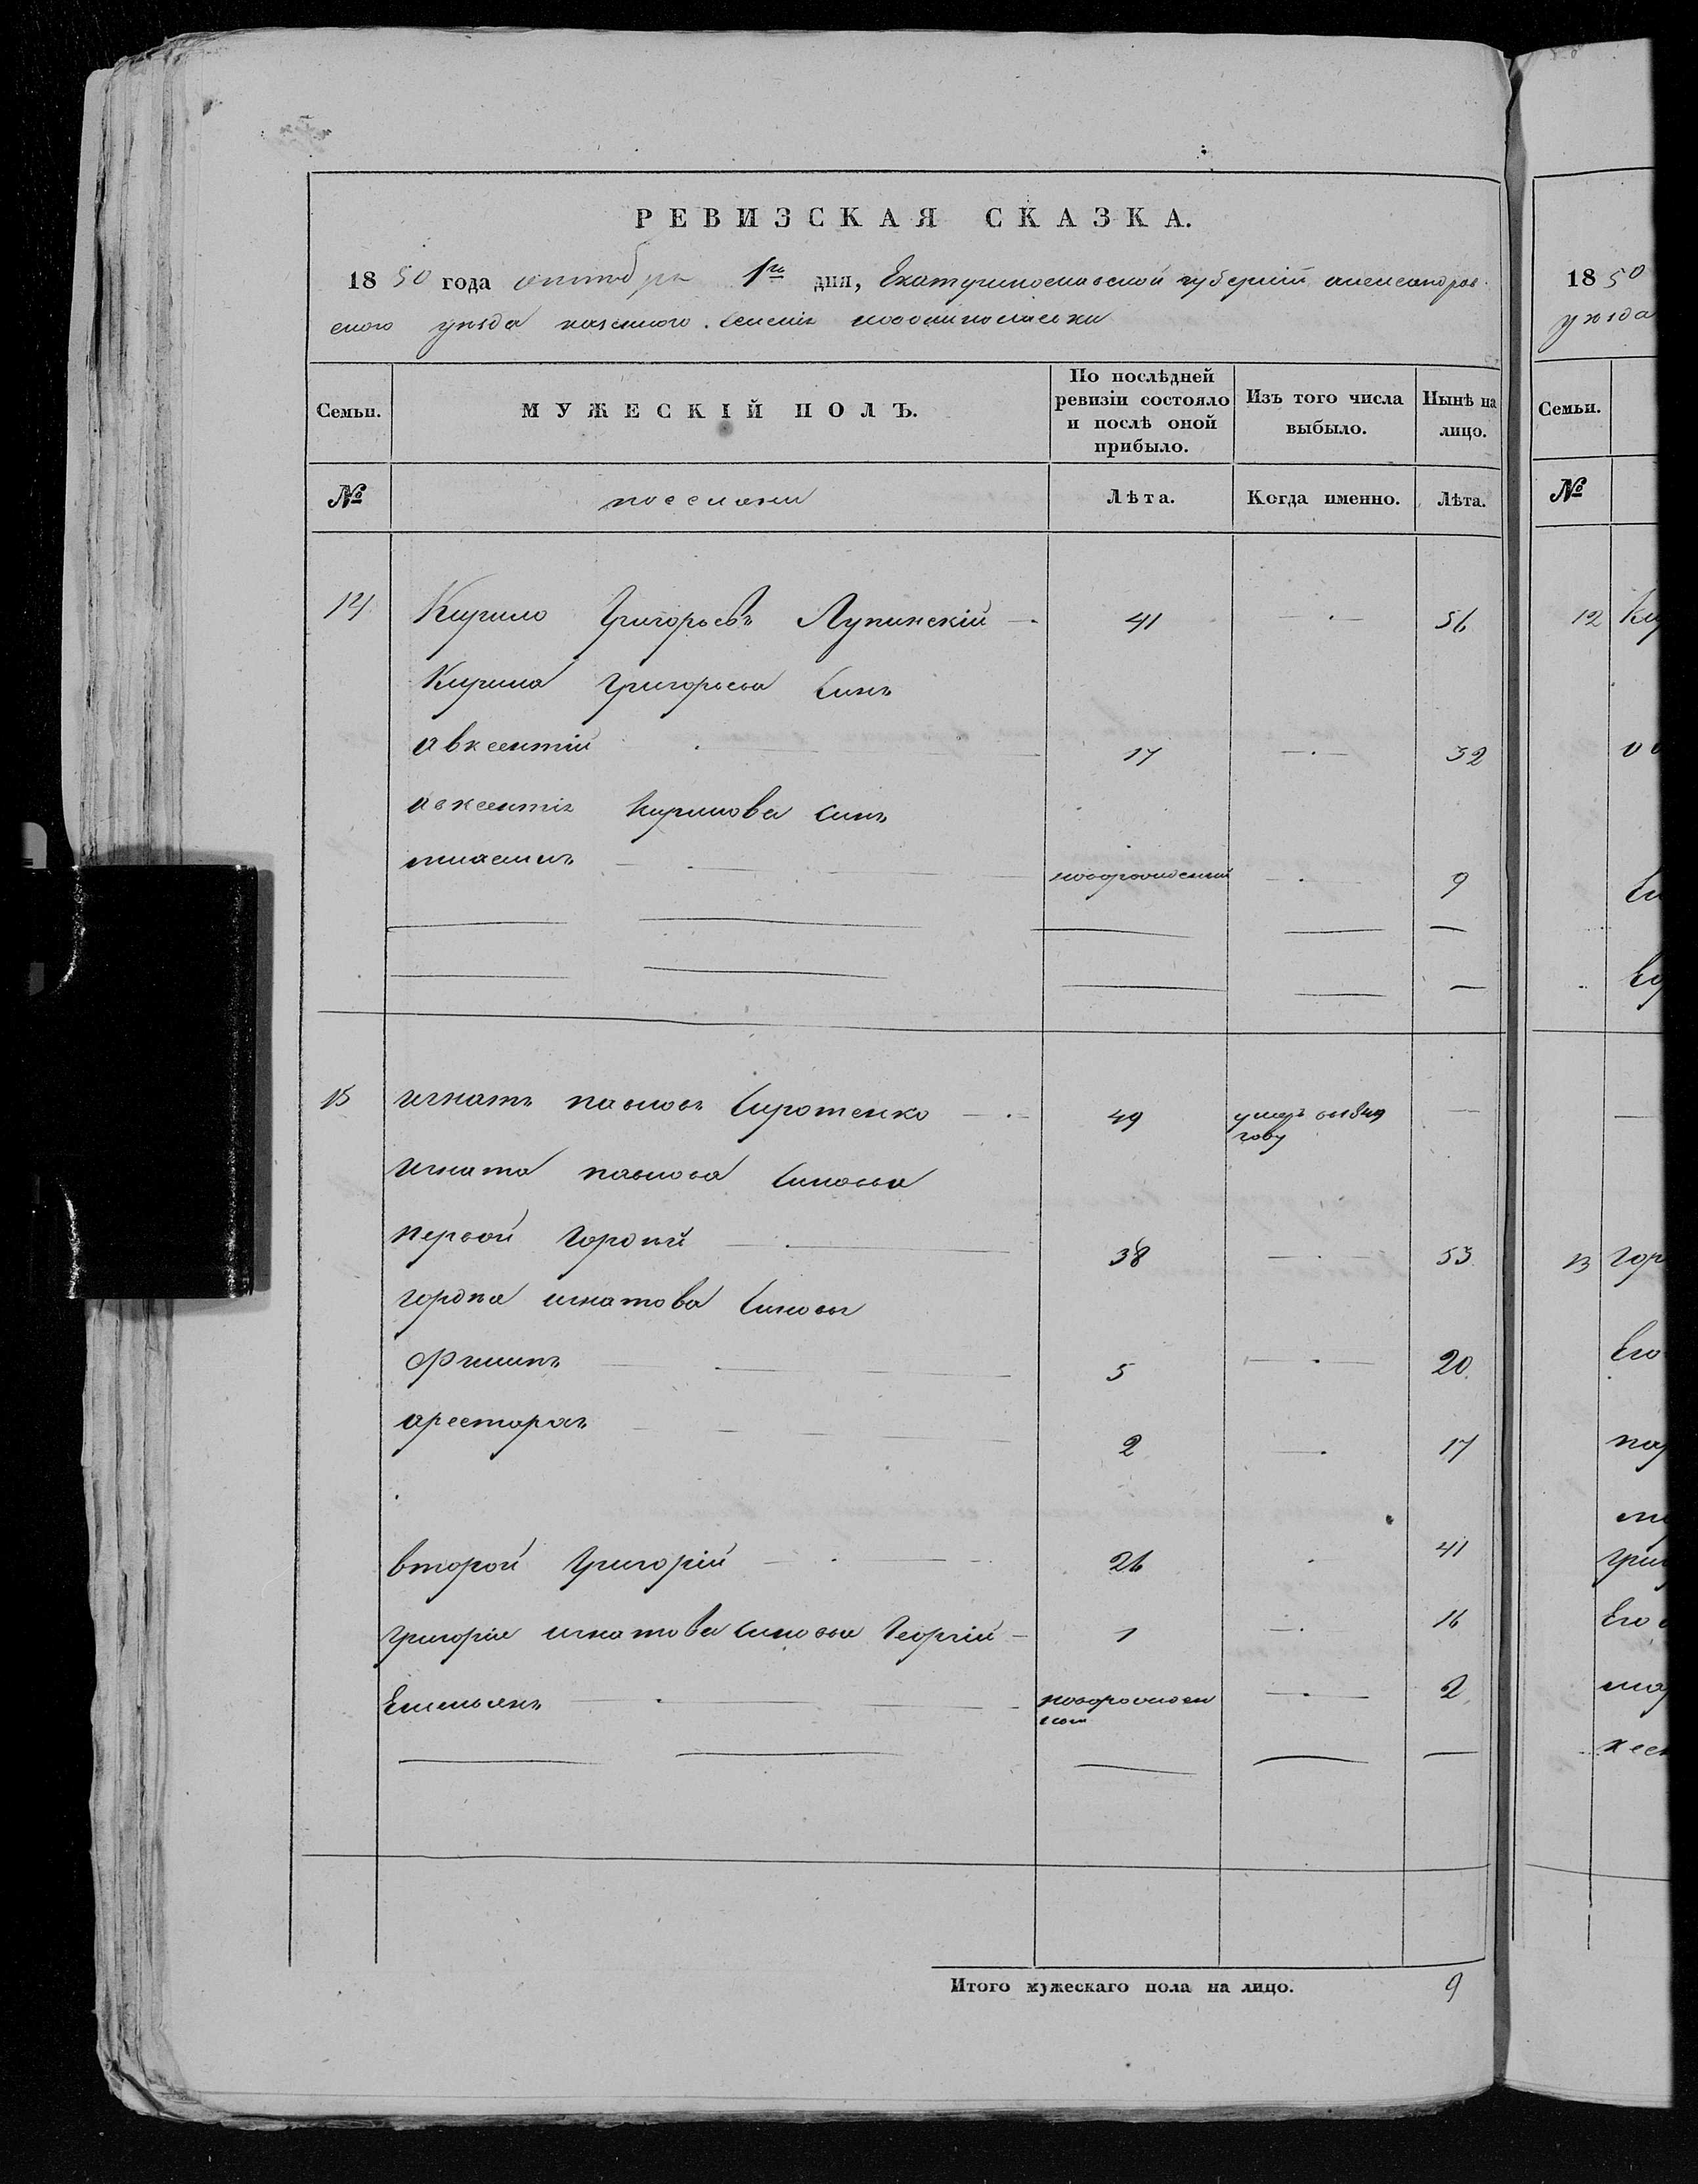 РЕВИЗСКАЯ СКАЗКА.
1850 года октября 1го дня, Екатеринославской губернии александров
ского уезда казенного селения новониколаевки
Семьи. МУЖЕСКІЙ ПОЛЪ. По послѣдней ревизіи состояло и послѣ оной прибыло. Изъ того числа выбыло. Нынѣ на лицо.
№ поселяни Лѣта. Когда именно. Лѣта.
14 Кирило Григорьевъ Лупинскій 41 56
Кирила Григорьева синъ
авксентій 17 32
авксентія Кирилова синъ
новорожденный 9
15 игнатъ павловъ Сиротенко 49 умеръ в 1849 году
игната павлова синовья
первой Гордѣй 38 53
гордѣя игнатова синовья
Филипъ 5 20.
арестархъ 2 17
второй Григорій 26 41
григорія игнатова синовья Георгій 1 16
Емельянъ новорожденной 2
Итого мужескаго пола на лицо. 9
1850
уезда
Семьи.
№
12
13 гор
Его
Его